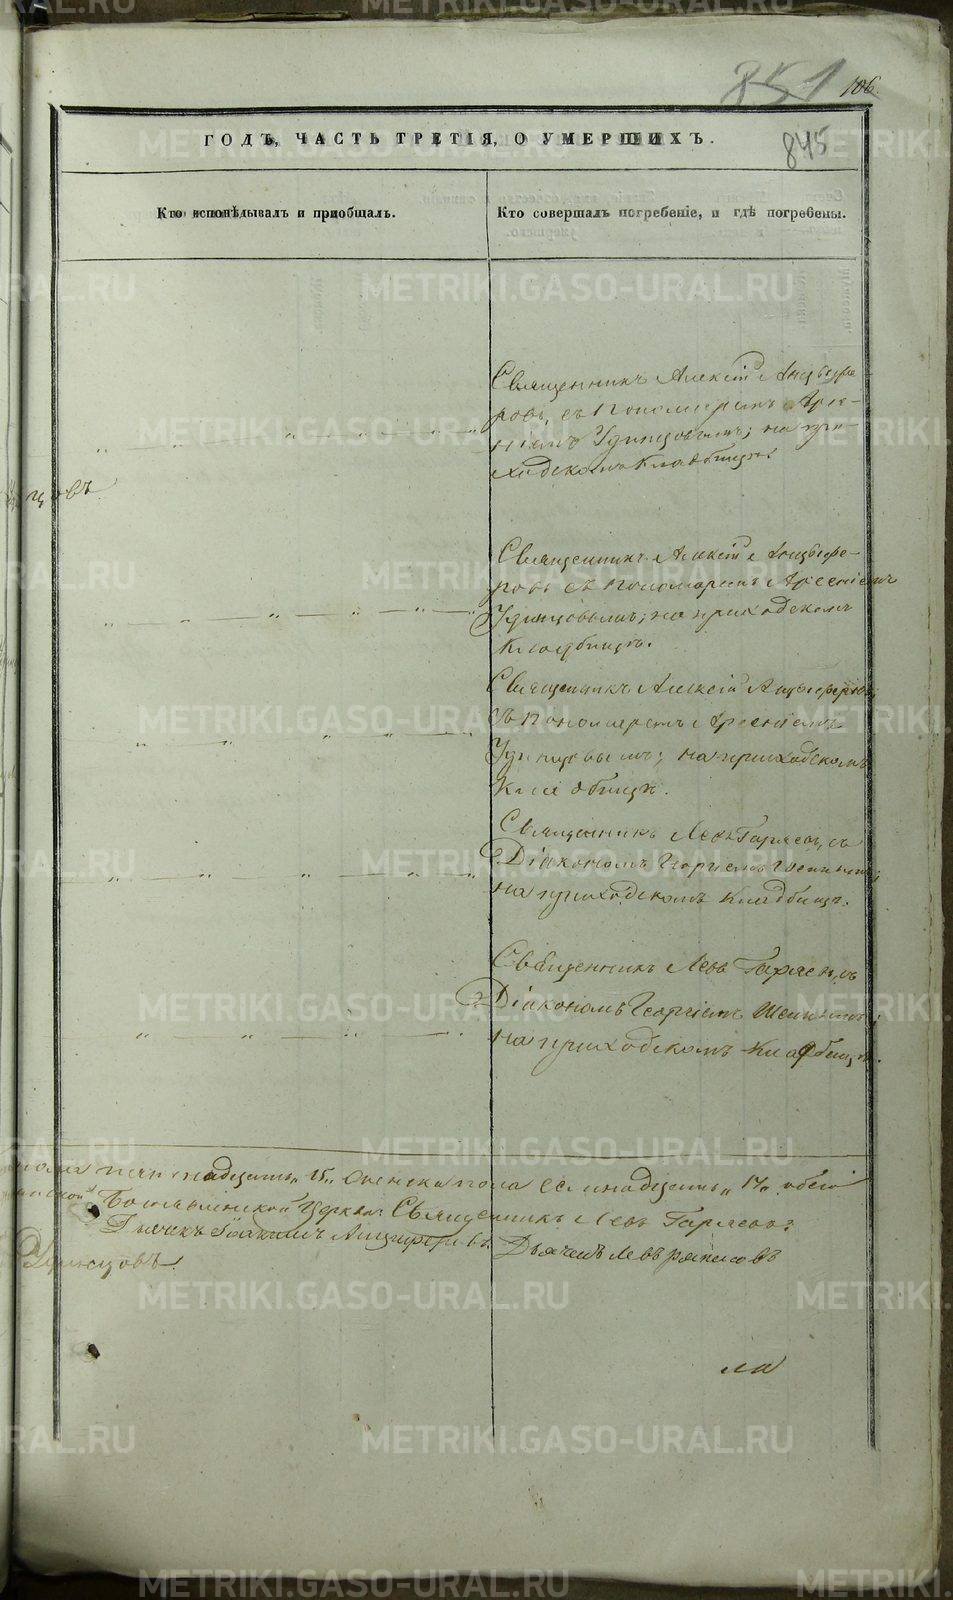 851 106.
ГОДЪ, ЧАСТЬ ТРЕТІЯ, О УМЕРШИХЪ.
845
Кто исповѣдывалъ и пріобщалъ.
Кто совершалъ погребеніе, и гдѣ погребены.
Священникъ Алексій Анцыфе
ровъ, съ Пономаремъ Арсе-
ніемъ Удинцовымъ; на при-
ходскомъ Кладбищѣ.
цовъ.
Священникъ Алексій Анцыфе-
ровъ съ Пономаремъ Арсеніемъ
Удинцовымъ; на приходскомъ
Кладбищѣ.
Священникъ Алексій Анцыферовъ;
съ Пономаремъ Арсеніемъ
Удинцовымъ; на приходскомъ
Кладбищѣ.
Священникъ Левъ Гаряевъ, съ
Діакономъ Георгіемъ
на приходскомъ Кладбищѣ.
Священникъ Левъ Гаряевъ, съ
Діакономъ Георгіемъ
на приходскомъ Кладбищѣ.
пола пятнадцать "15" женска пола семнадцать "17" обоего
Церкви Священникъ Левъ Гаряевъ
Дьячекъ Іоакимъ Анцыферовъ. Дьячекъ
Удинцовъ.
ла
METRIKI.GASO-URAL.RU